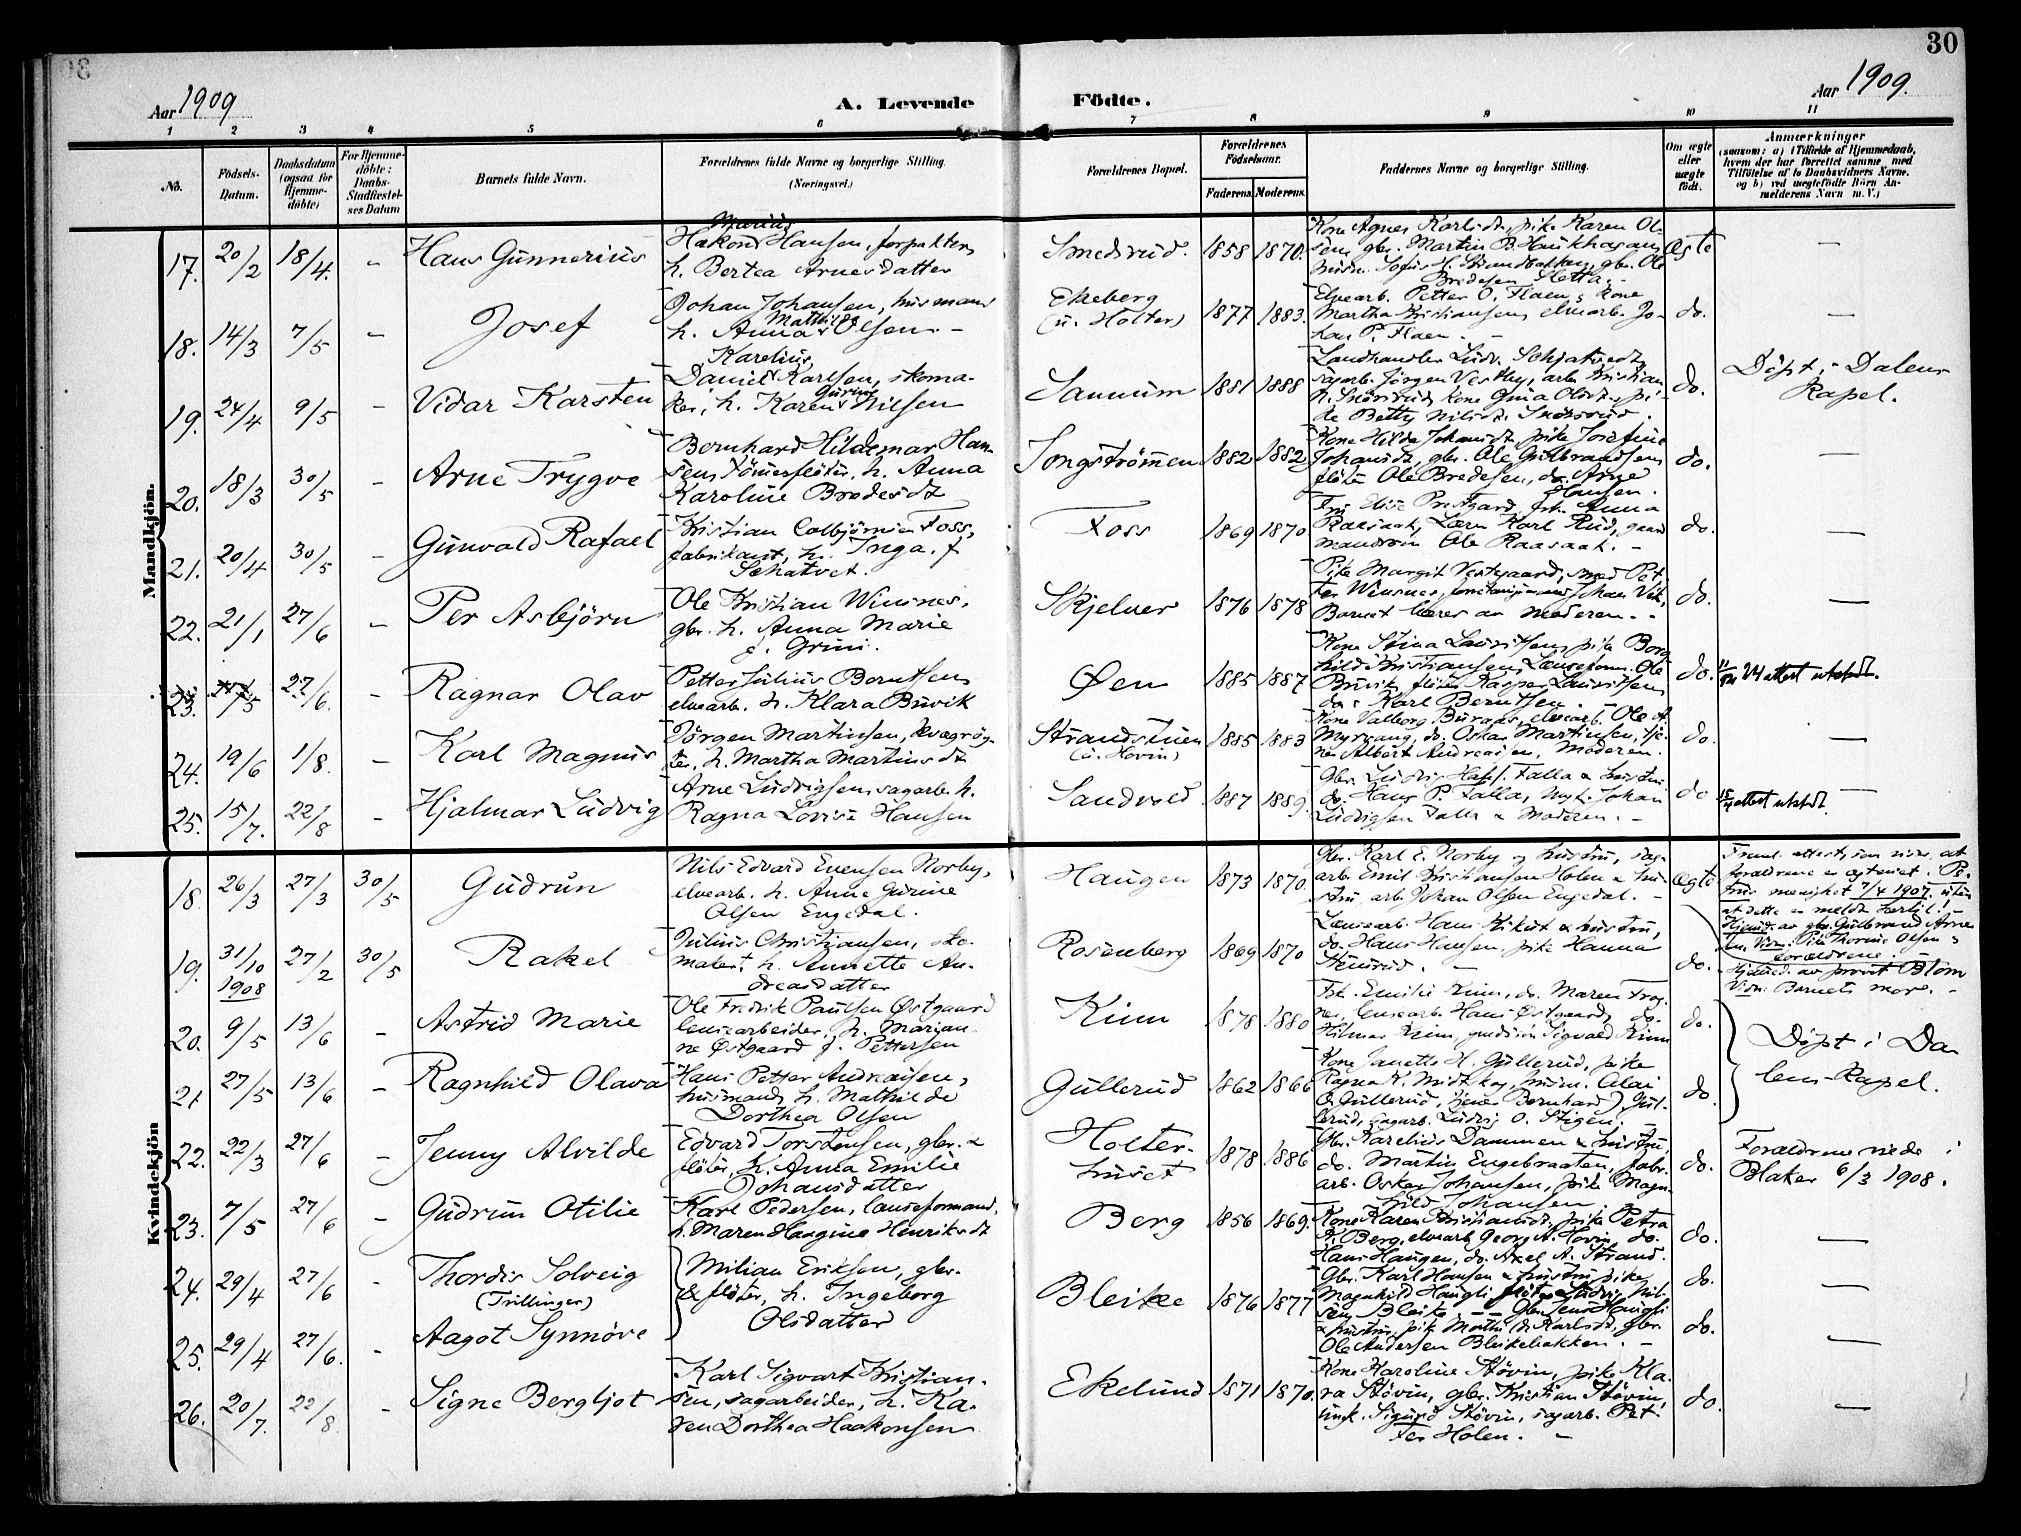 30
Aar 1909
A. Levende Födte.
Aar 1909.
1 2 3 4 5 6 7 8 9 10 11
No.
Födsels-Datum.
Daabsdatum (ogsaa for Hjemme-döbte)
For Hjemme-döbte: Daabs-Stadfæstel-ses Datum
Barnets fulde Navn.
Forældrenes fulde Navne og borgerlige Stilling.
(Næringsvei.)
Forældrenes Bopæl.
Forældrenes Födselsaar.
Faderens. Moderens.
Faddernes Navne og borgerlige Stilling.
Om ægte eller uægte födt.
Anmærkninger
(saasom: a) i Tilfælde af Hjemmedaab,
hvem der har forrettet samme, med
Tilföielse af to Daabsvidners Navne.
og b) ved uægtefödte Börn An-
melderens Navn m. V.)
Mandkjön.
17. 20/2 18/4. - Hans Gunnerius
Marius
Hakon Hansen, forpakter,
h. Bertea Arnesdatter
Smedsrud. 1858 1870.
Kone Agnes Karlsdt, pike Karen Ol-
sen, gbr. Martin P. Haukhagan,
Bredesen Sletta.
ægte —
18. 14/3 7/5 - Josef
Johan Johansen, husmand
h. Anna Mathilde Olsen. -
Ekeberg
(u. Holter)
1877 1883.
Elvearb. Petter O. Flaen, kone
Martha Kristiansen, elvearb. Jo-
han P. Flaen. -
do. —
19. 24/4 9/5 - Vidar Karsten
Karelius
Daniel Karlsen, skoma-
ker, h. Karen Gurine Nilsen
Sannum 1881 1888
Landhandler Ludv. Schjatvedt,
sagarb. Jörgen Vestby, arb. Kristian
H. Snösrud, kone Gina Olsdt., pi-
ke Betty Nilsdt. Snösrud.
do. Döpt i Dalens
Kapel.
20. 18/3 30/5 - Arne Trygve
Bernhard Hildemar Han-
sen, tömmerflöter, h. Anna
Karoline Bredesdt
Songströmmen 1882 1882
Kone Hilda Johansdt, pike Josefine
Johansdt, gbr. Ole Gulbrandsen,
flöter Ole Bredesen, do. Arne
Hansen.
do. —
21. 20/4 30/5 - Gunvald Rafael
Kristian Colbjörnsen Foss,
fabrikant, h. Inga f.
Schatvet.
Foss 1869 1870
Fru Elise Prestgard, frk. Anna
Raasaak, Lærer Karl Rud, gaard
mandssön Ole Raasaak. -
do. —
22. 21/1 27/6 - Per Asbjörn
Ole Kristian Winsnes,
gbr. h. Anna Marie
f. Grini.
Skjelver 1876 1878
Pike Margit Vestgaard, smed Pet-
ter Winsnes,
Barnet bæres av moderen. -
do. —
23. 27/6. - Ragnar Olav
Petter Julius Berntsen,
elvearb. h. Klara Buvik
Øen 1885 1887
Kone Stina Lauritsen, pike Borg-
hild Kristiansen, Lænseform. Ole
Buvik, flöter Kasper Lauritsen,
do: Karl Berntsen. -
do. attest utstedt.
24. 19/6 1/8. - Karl Magnus
Jörgen Martinsen, kvægrög-
ter, h. Martha Martinsdt
Strandstuen
(u. Hovin)
1885 1883
Kone Valborg Buraas, elvearb. Ole A.
Myrvang, do. Oskar Martinsen, tje-
ner Albert Andreasen, Moderen.
do. —
25. 15/7. 22/8 - Hjalmar Ludvig
Arne Ludvigsen, sagarb. h.
Ragna Lovise Hansen
Sandvold. 1887 1889.
Gbr. Ludvig Hans. Falla & hustru
do. Hans P. Falla, Johan
Ludvigsen Falla & Moderen. -
do attest utstedt. —
Kvindekjön
18. 26/3 27/3 30/5 Gudrun
Nils Edvard Evensen Norby,
elvearb. h. Anne Gurine
Olsen Engedal.
Haugen 1873 1870.
Gbr. Karl E. Norby og hustru, sag-
arb. Emil Kristiansen Holen & hu-
stru, arb. Johan Olsen Engedal. -
ægte Freml. attest, som viser at
forældrene er egteviet i Pe-
trus menighet 7/4 1907, uten
at dette er meldt
Hjemd. av gbr. Gulbrand Arne-
sen. Vidn: Pike Thorine Olsen &
forældrene.
19. 31/10 1908 27/2 30/5 Rakel
Julius Christiansen, sko-
maker, h. Annette An-
dreasdatter
Rosenberg 1869 1870
Lænsearb. Hans Kikut & hustru,
do. Hans Hansen, pike Hanna
Stensrud. -
do. Hjemd. av provst Blom
Vidn: Barnets mor. -
20. 9/5 13/6 - Astrid Marie
Ole Fredrik Paulsen Østgaard
lensearbeider, h. Marian-
ne Østgaard f. Pettersen
Kinn 1878 1880
Frk. Emilie Kinn, do. Maren Frog-
ner, lensearb. Hans Østgaard, do.
Hilmar Kinn, Sigvald Kinn
do. Döpt i Da
lens Kapel.
21. 27/5 13/6 - Ragnhild Olava
Hans Petter Andreasen,
husmand, h. Mathilde
Dorthea Olsen
Gullerud 1862 1866
Kone Janette H. Gullerud, pike
Ragna A. Midtskog, husm. Olai
O. Gullerud, tjener Bernhard J. Gul-
lerud, sagarb. Ludvig O. Stigen. -
do.
22. 22/3 27/6 - Jenny Alvilde
Edvard Torstensen, gbr. &
flöter, h. Anna Emilie
Johansdatter
Holter-
huset
1878 1886
Gbr. Karelius Dammen & hustru,
do. Martin Engebraaten, fabr.
arb. Oskar Johansen, pike Magn-
hild Johansen
do. Forældrene viede i
Blaker 6/3 1908.
23. 7/5 27/6 - Gudrun Otilie
Karl Pedersen, lænseformand,
h. Maren Haagine Henriksdt
Berg 1856 1869.
Kone Karen Kristiansdt. pike Petra
K. Berg, elvearb. Georg A. Hovin, do.
Hans Haugen, do. Axel A. Strand.
do. —
24. 29/4 27/6 - Thordis Solveig
(Trillinger)
Milian Eriksen, gbr.
& flöter, h. Ingeborg
Olsdatter
Bleike 1876 1877
Gbr. Karl Hansen & hustru, pike
Magnhild Haugli, flöter Ludvig Nil-
sen Bleike. — Gbr. Jens Haugli
& hustru, pike Mathilde Karlsdt, gbr.
Ole Andersen Bleikebakken. -
do. —
25. 29/4 27/6. - Aagot Synnöve
do. —
26. 20/7. 22/8. - Signe Bergljot
Karl Sigvart Kristian-
sen, sagarbeider, h. Ka-
ren Dorthea Haakonsen
Ekelund 1871 1870.
Kone Karoline Stövin, pike Kla-
ra Stövin, gbr. Kristian Stövin,
ungk. Sigurd Stövin, sagarb. Pet-
ter Holen. -
do. —